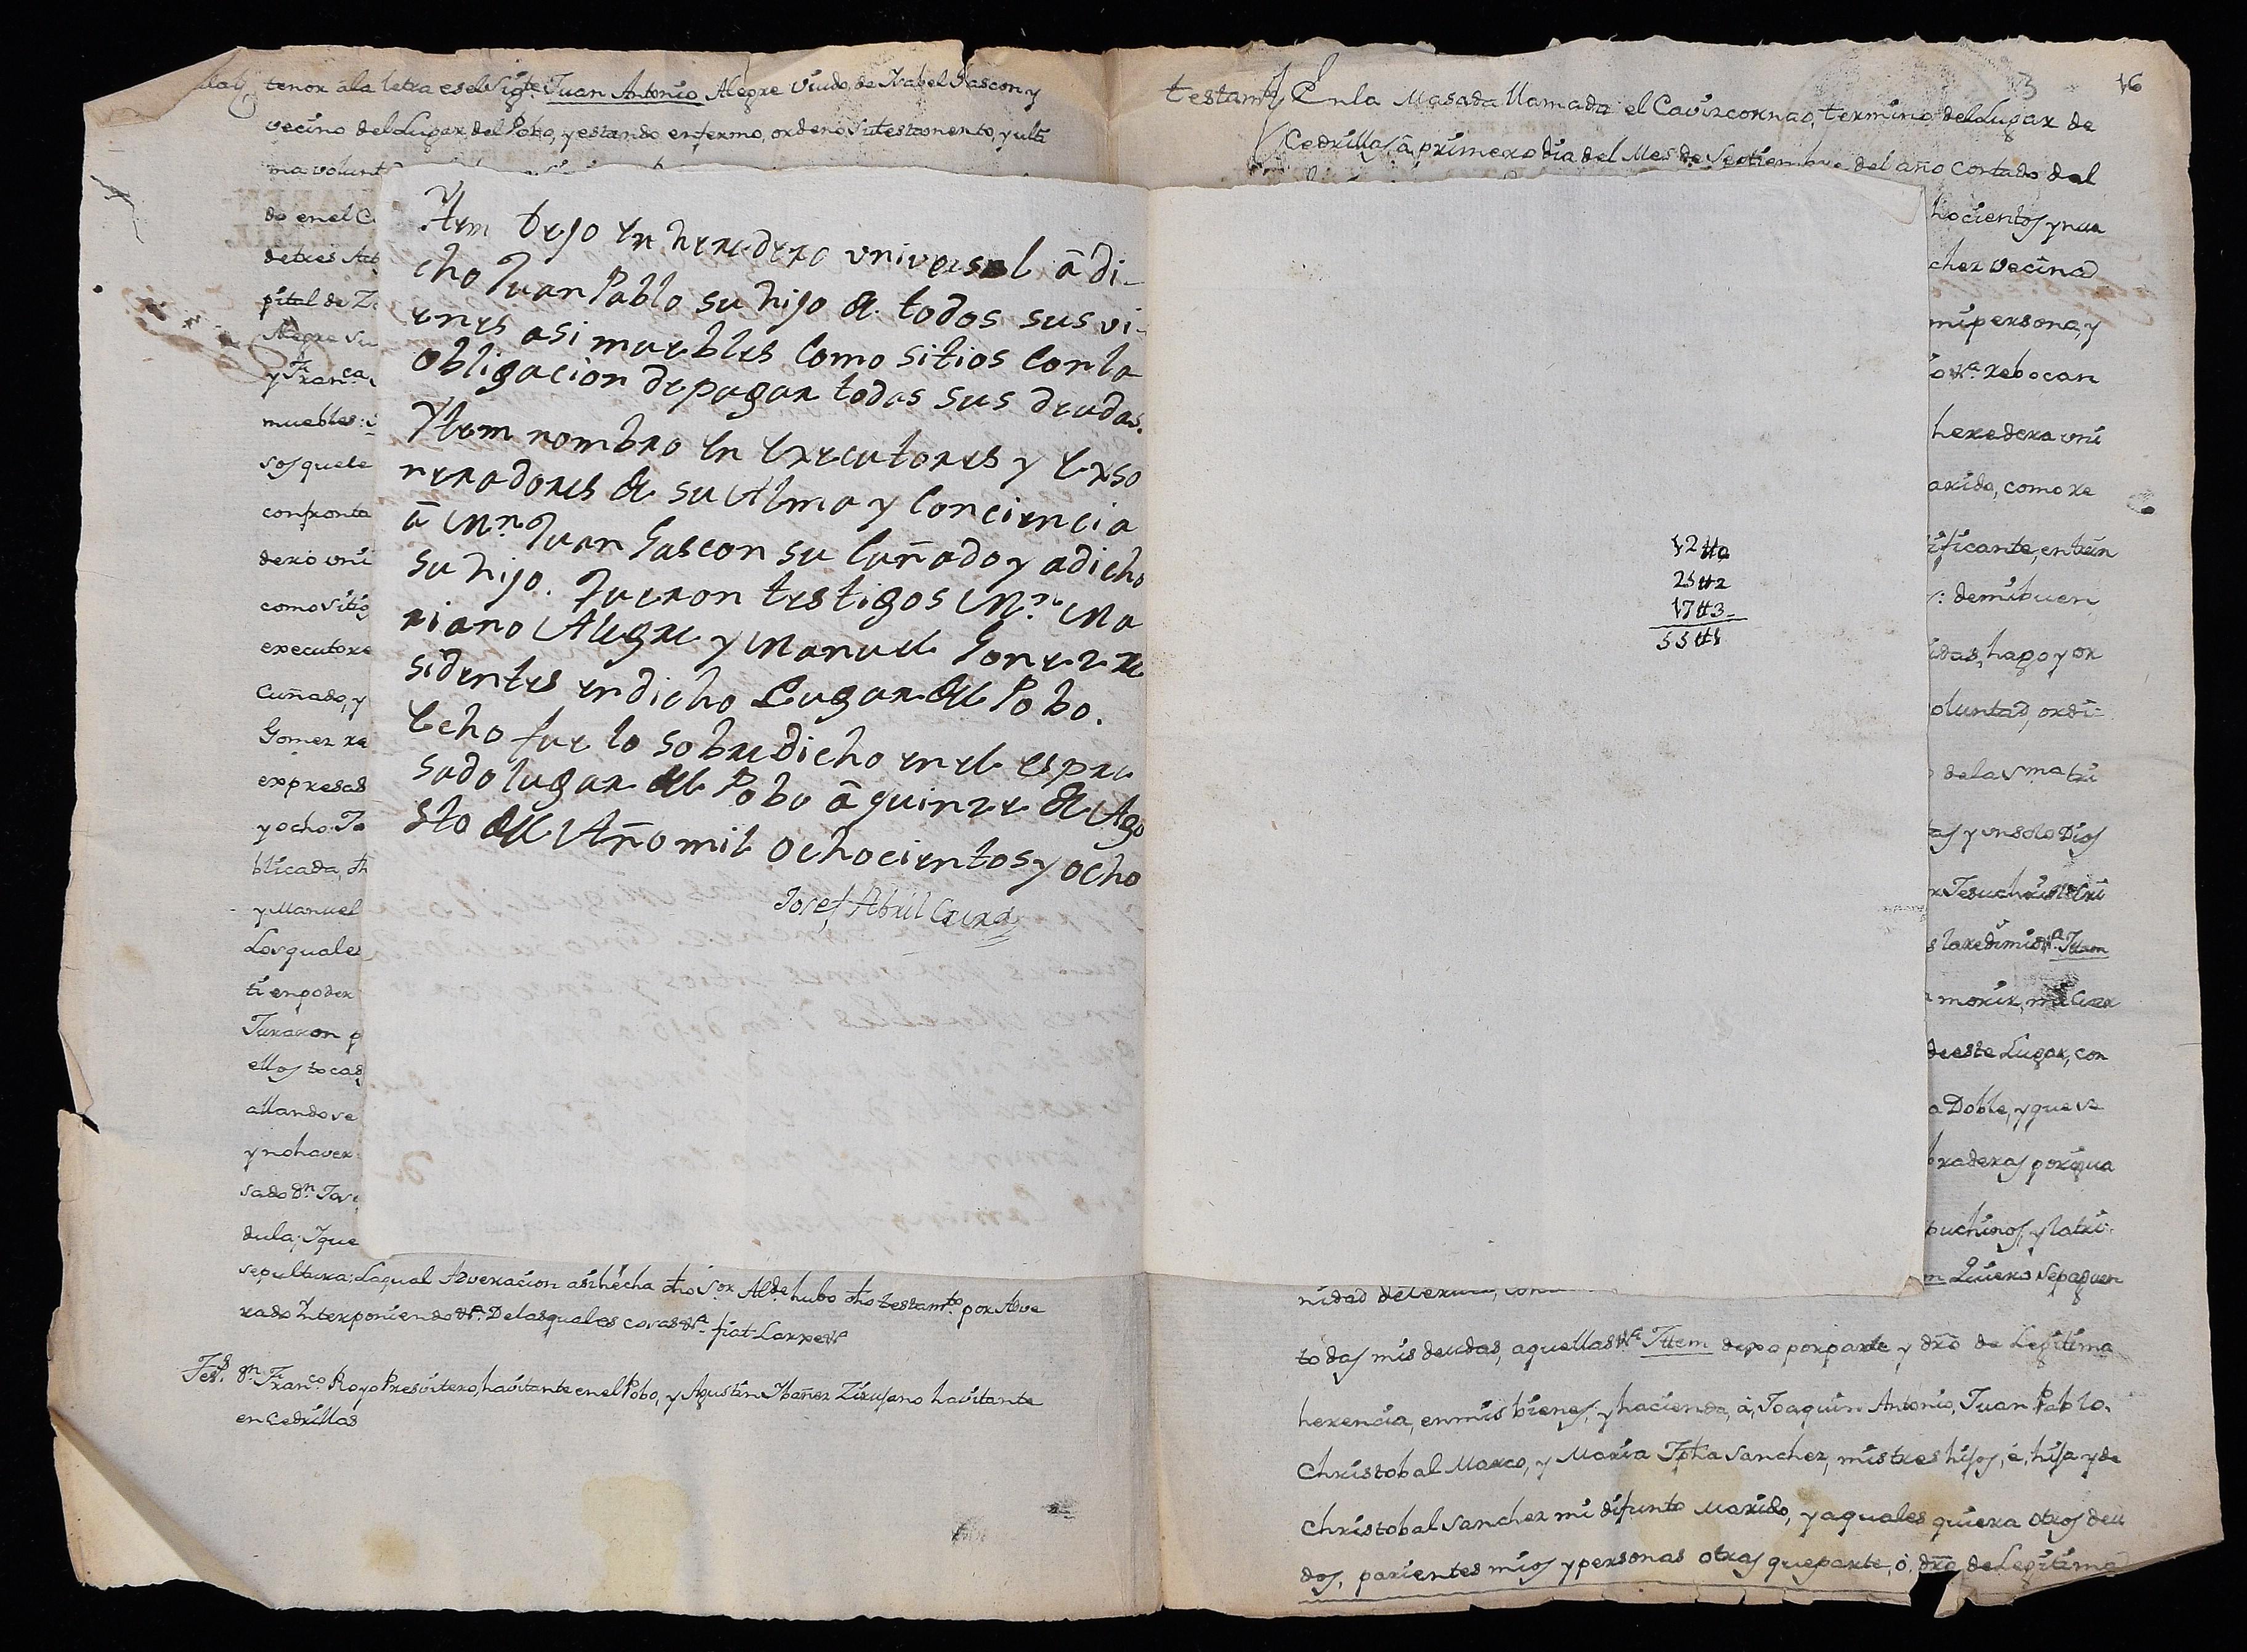 tenor à la letra es el Sigte. Juan Antonio Alegre Viudo, de Ysabel Gascon y
vecino del Lugar del Pobo, y estando enfermo, ordenò su testamento, y ulti
ma volunt
do en el C
de tres
pital de Z
Alegre Su
y Franca.
muebles:
sos que le
confronta
dero uni
como sitio
executore
Cuñado, y
Gomez re
expresad
y ocho. Ja
blicada, dh
y Manuel
Los quales
ti en poder
Juraron p
ellos tocad
allandose
y no haver
sado Dn. Jos
dula; Y que
sepultura; La qual Adveracion asi hecha dho Sor. Alde. hubo dho testamto. por Adve
rado Interponiendo &a. De las quales cosas &a. fiat Large &a
Tes. Dn. Franco. Royo Presvitero, havitante en el Pobo, y Agustin Ybañez Zirujano havitante
en Cedrillas
Ytem dejo en heredero universal â di-
cho Juan Pablo su hijo de todos sus vi-
enes asi muebles como sitios con la
obligacion de pagar todas sus deudas.
Ytem nombro en executores y exso
neradores de su Alma y Conciencia
â Mn. Juan Gascon su Cuñado y a dicho
su hijo. Fueron testigos Mn. Ma
riano Alegre y Manuel Gomez re
sidentes en dicho Lugar del Pobo.
Echo fue lo sobredicho en el espre
sado lugar del Pobo â quinze de Ago
sto del Año mil ochocientos y ocho
Josef Abril Cura
12 # 0
25 # 2
17 # 3
55 # 1
3 16
testamto. En la Masada llamada el Cavizcornao, termino del Lugar de
Cedrillas, â primero dia del Mes de Septiembre del año contado del
hocientos y nue
chez vecina d
mi persona, y
o &a. rebocan
heredera uni
arido, como re
ificante, en tan
demi buen
idas, hago y or
oluntad, ordi-
de la Sma. tri
tas y un solo Dios
r Jesuchristo
s la redimio &a. Ittem
morir, mi Cuer
de este Lugar, con
a Doble, y que se
braderas por qua
puchinos, y la tri-
m Quiero se paguen
nidad
todas mis deudas, aquellas &a. Ittem dexo por parte y dro de Legitima
herencia, en mis bienes, y hacienda, â, Joaquin Antonio, Juan Pablo,
Christobal Marco, y Maria Jpha Sanchez, mis tres hijos, é, hija y de
Christobal Sanchez mi difunto Marido, y a quales quiera otros deu
dos, parientes mios y personas otras que parte, ò, dro de Legitima